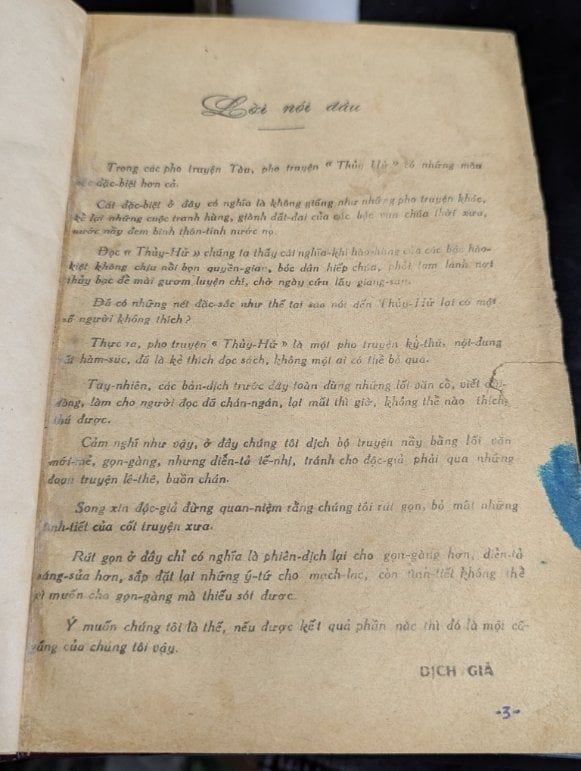 Lời nói đầu
Trong các pho truyện Tàu, pho truyện « Thủy Hử » có những màu
sắc đặc-biệt hơn cả.
Cái đặc-biệt ở đây có nghĩa là không giống như những pho truyện khác,
kể lại những cuộc tranh hùng, giành đất-đai của các bậc vua chúa thời xưa,
nước nầy đem binh thôn-tính nước nọ.
Đọc « Thủy-Hử » chúng ta thấy cái nghĩa-khí hào-hùng của các bậc hào-
kiệt không chịu nổi bọn quyền-gian, bóc dân hiếp chúa, phải tạm lánh nơi
thủy bạc để mài gươm luyện chí, chờ ngày cứu lấy giang-san.
Đã có những nét đặc-sắc như thế tại sao nói đến Thủy-Hử lại có một
số người không thích ?
Thực ra, pho truyện « Thủy-Hử » là một pho truyện kỳ-thú, nội-dung
rất hàm-súc, đã là kẻ thích đọc sách, không một ai có thể bỏ qua.
Tuy-nhiên, các bản-dịch trước đây toàn dùng những lối văn cổ, viết
dòng, làm cho người đọc đã chán-ngán, lại mất thì giờ, không thể nào thích
thú được.
Cảm nghĩ như vậy, ở đây chúng tôi dịch bộ truyện nầy bằng lối văn
mới-mẻ, gọn-gàng, nhưng diễn-tả tế-nhị, tránh cho độc-giả phải qua những
đoạn truyện lê-thê, buồn chán.
Song xin độc-giả đừng quan-niệm rằng chúng tôi rút gọn, bỏ mất những
tình-tiết của cốt truyện xưa.
Rút gọn ở đây chỉ có nghĩa là phiên-dịch lại cho gọn-gàng hơn, diễn-tả
sáng-sủa hơn, sắp đặt lại những ý-tứ cho mạch-lạc, còn tình-tiết không thể
vì muốn cho gọn-gàng mà thiếu sót được.
Ý muốn chúng tôi là thế, nếu được kết quả phần nào thì đó là một cố-
gắng của chúng tôi vậy.
DỊCH GIẢ
-3-